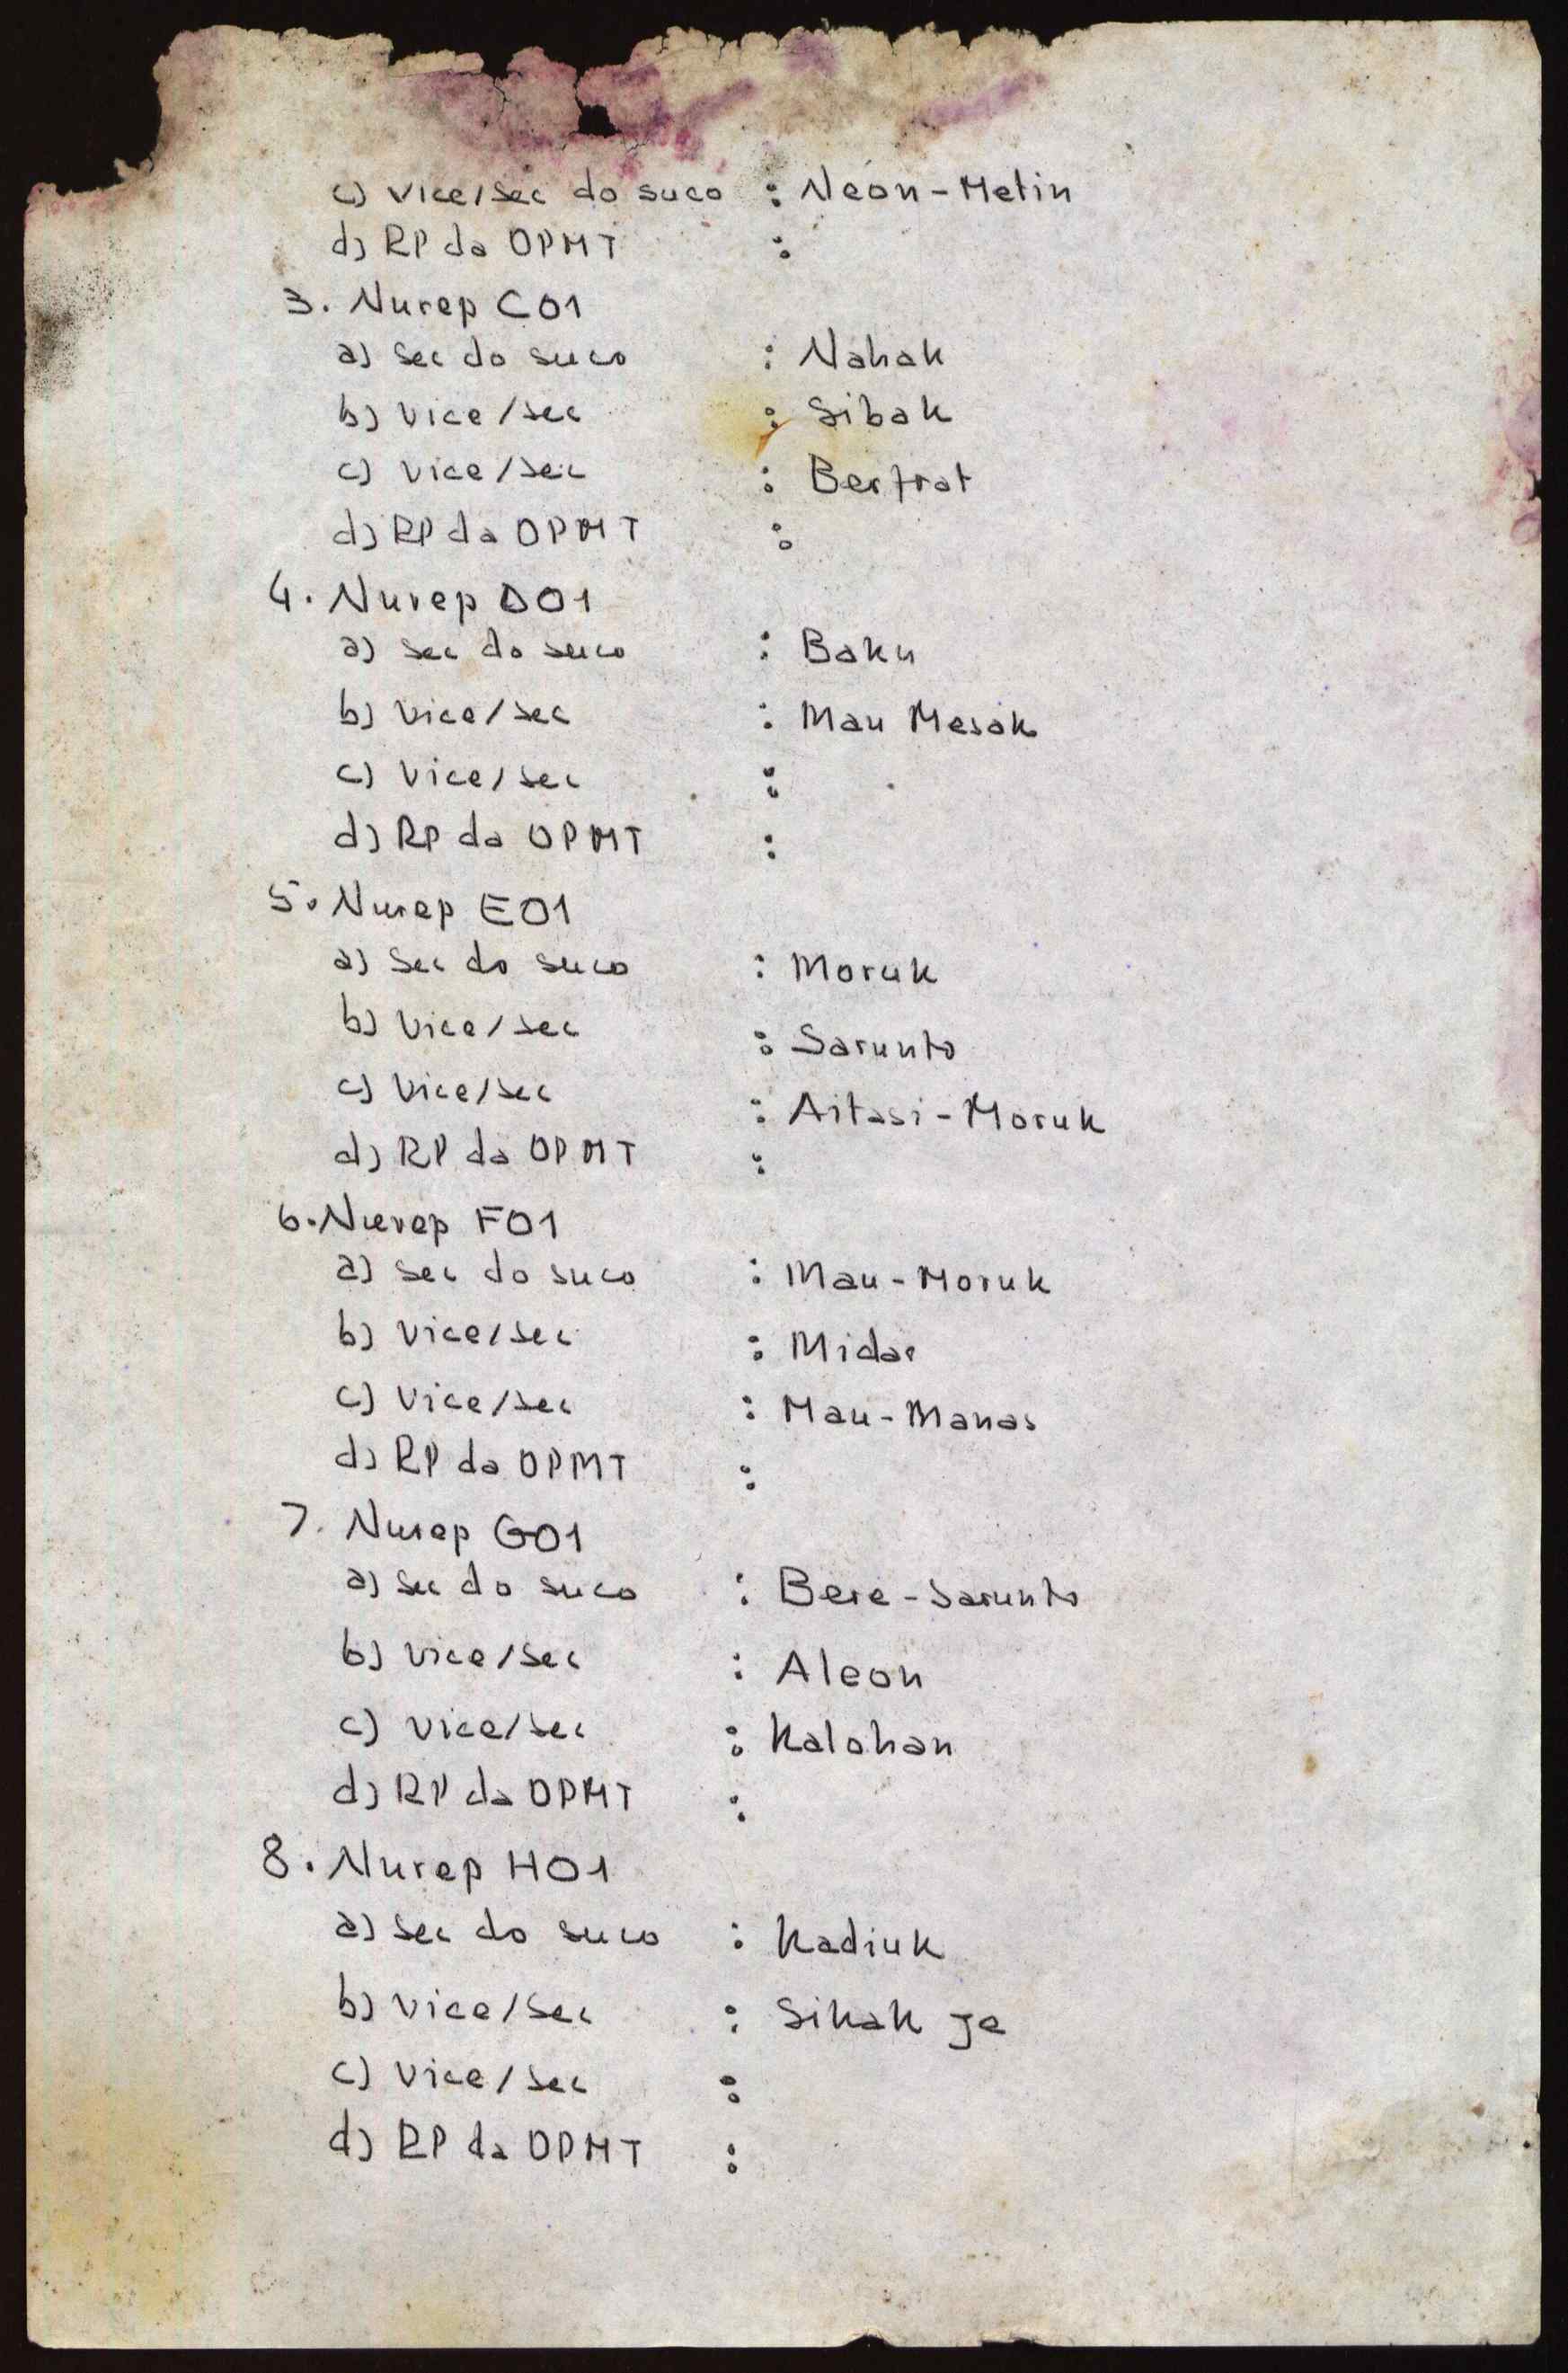 c) Vice/sec do suco : Neon-Metin
d) RP da OPMT :
3. Nurep C01
a) Sec do suco : Nahak
b) Vice/sec : Sibak
c) Vice/sec : Berfrat
d) RP da OPMT :
4. Nurep D01
a) Sec do suco : Baku
b) Vice/sec : Mau Mesak
c) Vice/sec :
d) RP da OPMT :
5. Nurep E01
a) Sec do suco : Moruk
b) Vice/sec : Sarunto
c) Vice/sec : Aitasi-Moruk
d) RP da OPMT :
6. Nurep F01
a) Sec do suco : Mau-Moruk
b) Vice/sec : Midar
c) Vice/sec : Mau-Manas
d) RP da OPMT :
7. Nurep G01
a) Sec do suco : Bere-Sarunto
b) Vice/sec : Aleon
c) Vice/sec : Kalohan
d) RP da OPMT :
8. Nurep H01
a) Sec do suco : Kadiuk
b) Vice/Sec : Sikak Je
c) Vice/sec :
d) RP da OPMT :